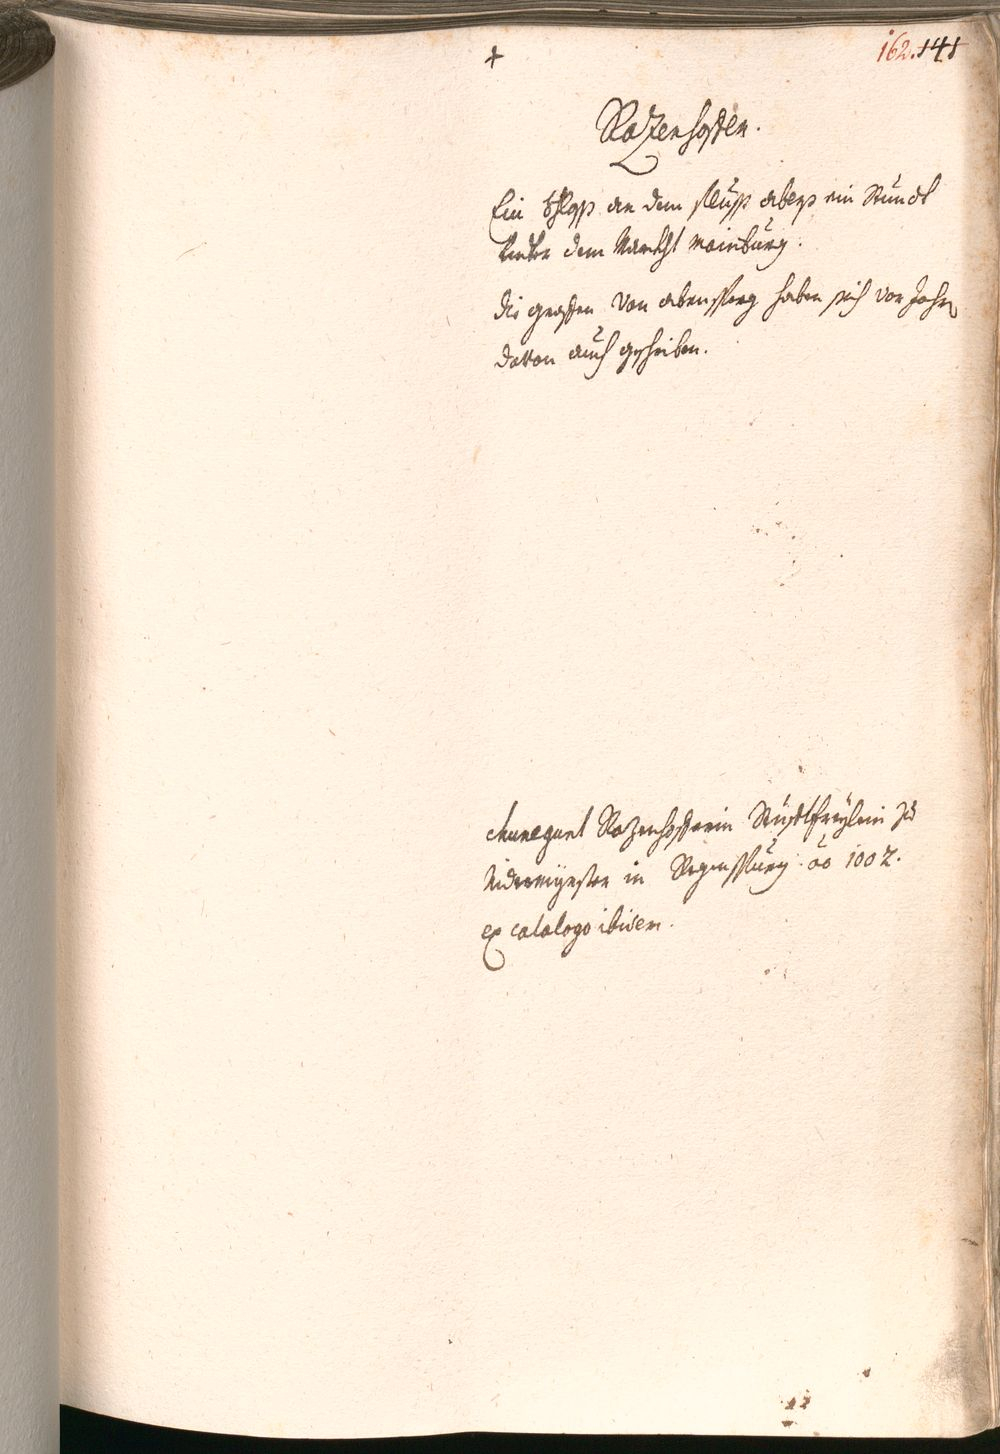 +
162. 141
Razenhofen.
Ein Schloß an dem fluß abens ein Stundt
Unter dem Marckht Mainburg.
die grafen von abensperg haben sich vor Jahrn
davon auch geschriben.
Chunegunt Razenhoferin Stüfftfreylein zu
Nidermünster in Regenspurg ao 1002.
ex catalogo ibidem.